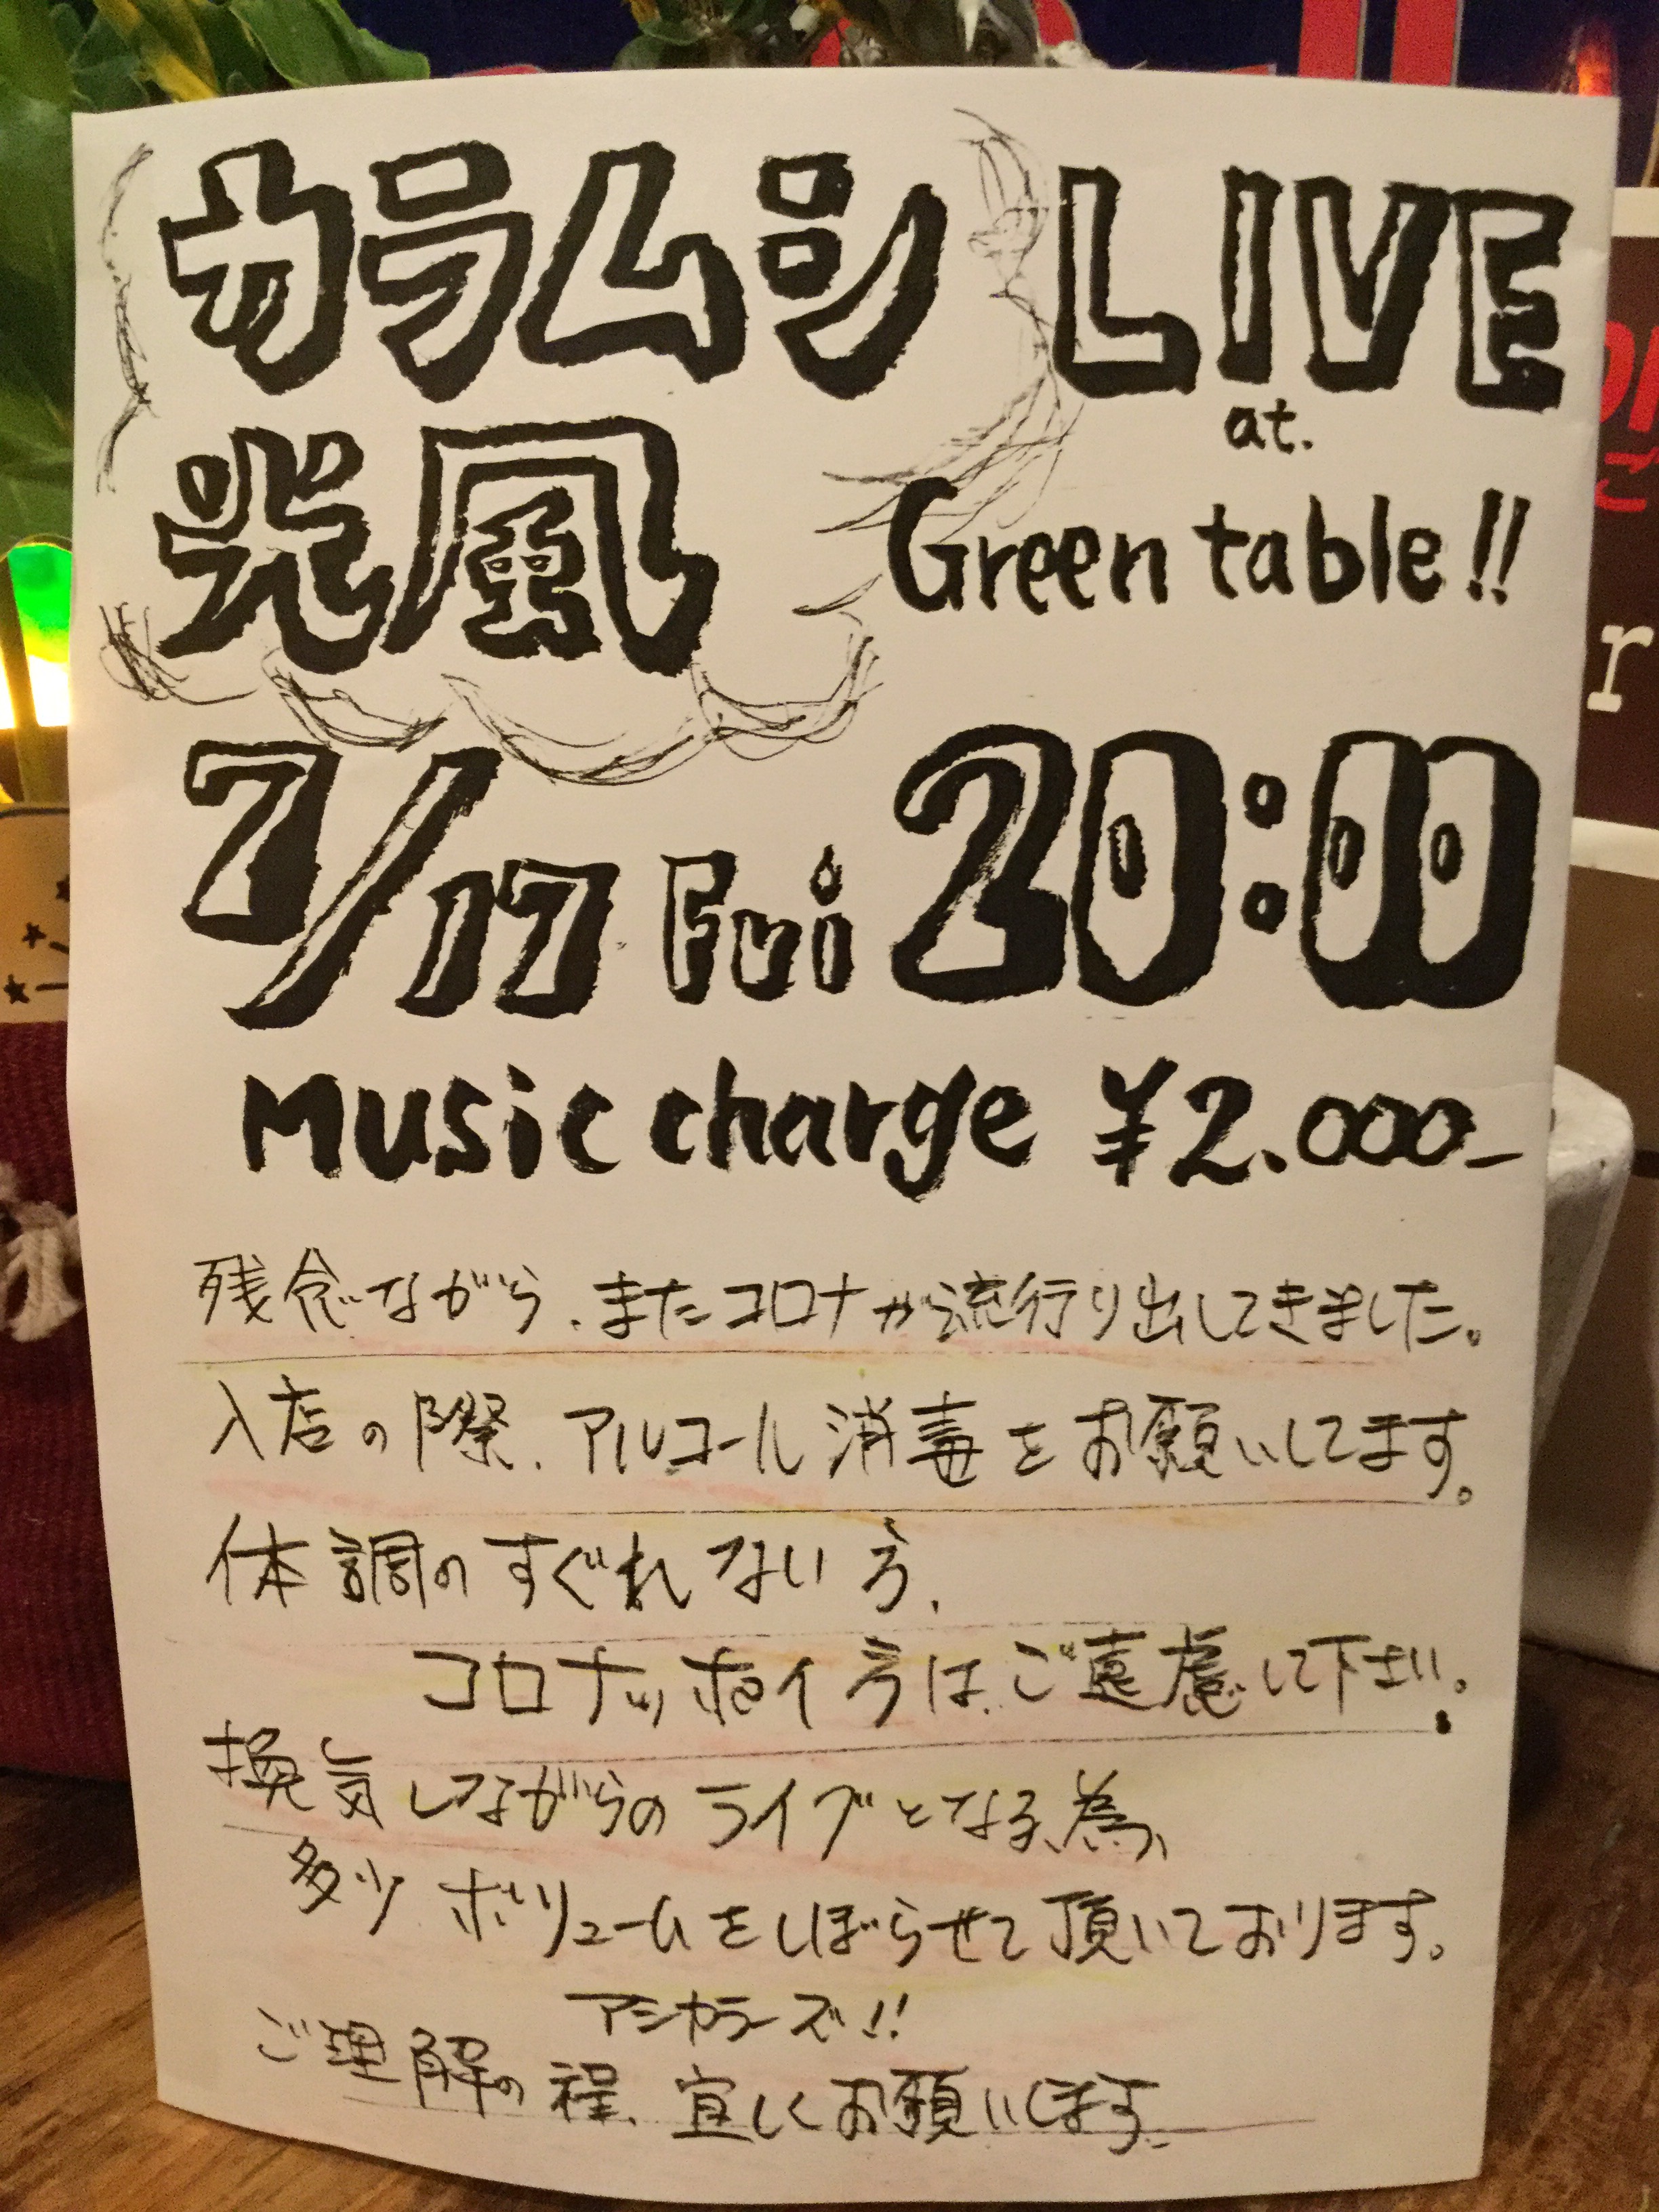 カラムシ LIVE
at.
光風 Green table!!
7/17 Fri 20:00
Music charge ¥2.000-
残念ながら、またコロナが流行り出してきました。
入店の際、アルコール消毒をお願いしてます。
体調のすぐれない方、
コロナッポイ方は、ご遠慮して下さい。
換気しながらのライブとなる為、
多少ボリュームをしぼらせて頂いております。
アシカラーズ!!
ご理解の程、宜しくお願いします。
r